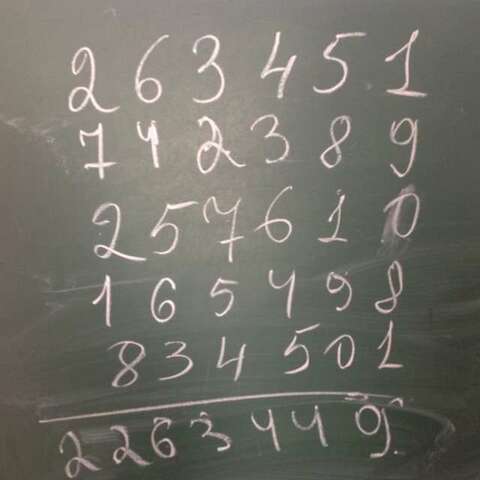 263451
742389
257610
165498
834501
2263449